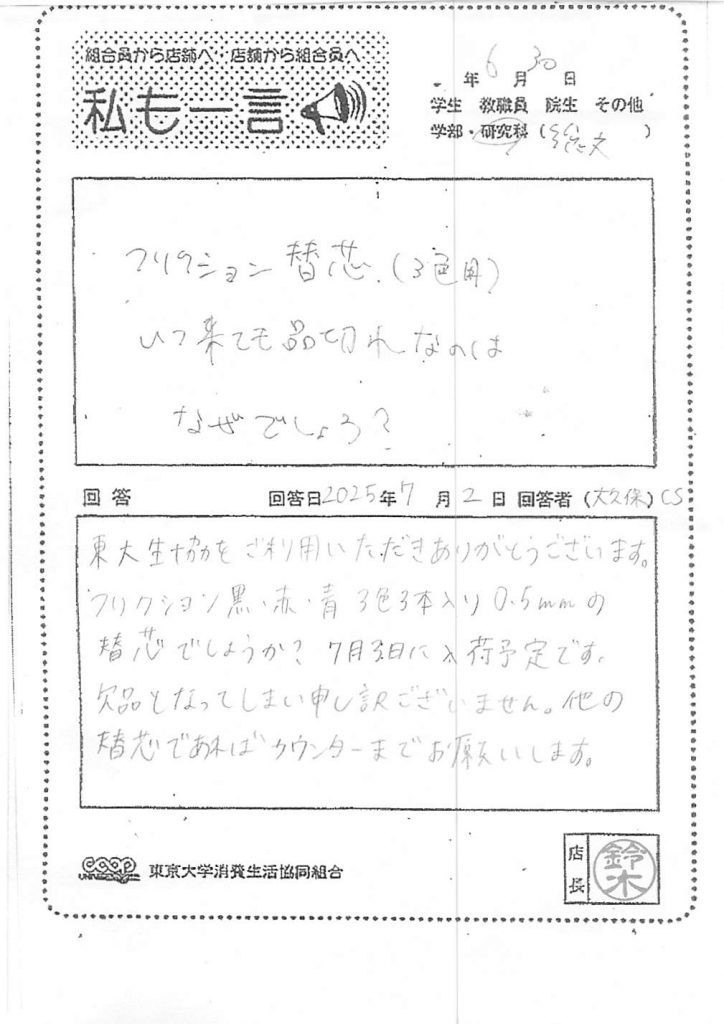 組合員から店舗へ 店舗から組合員へ
私も一言
年 6 月 30 日
学生 教職員 院生 その他
学部・研究科 ( )
フリクション替芯.(3色用)
いつ来ても品切れなのは
なぜでしょう?
回答 回答日2025年7月2日 回答者(大久保)CS
東大生協をご利用いただきありがとうございます。
フリクション黒・赤・青 3色3本入り0.5mmの
替芯でしょうか? 7月3日に入荷予定です。
欠品となってしまい申し訳ございません。他の
替芯であればカウンターまでお願いします。
coop 東京大学消費生活協同組合
UNIVERSITY
店長 鈴木